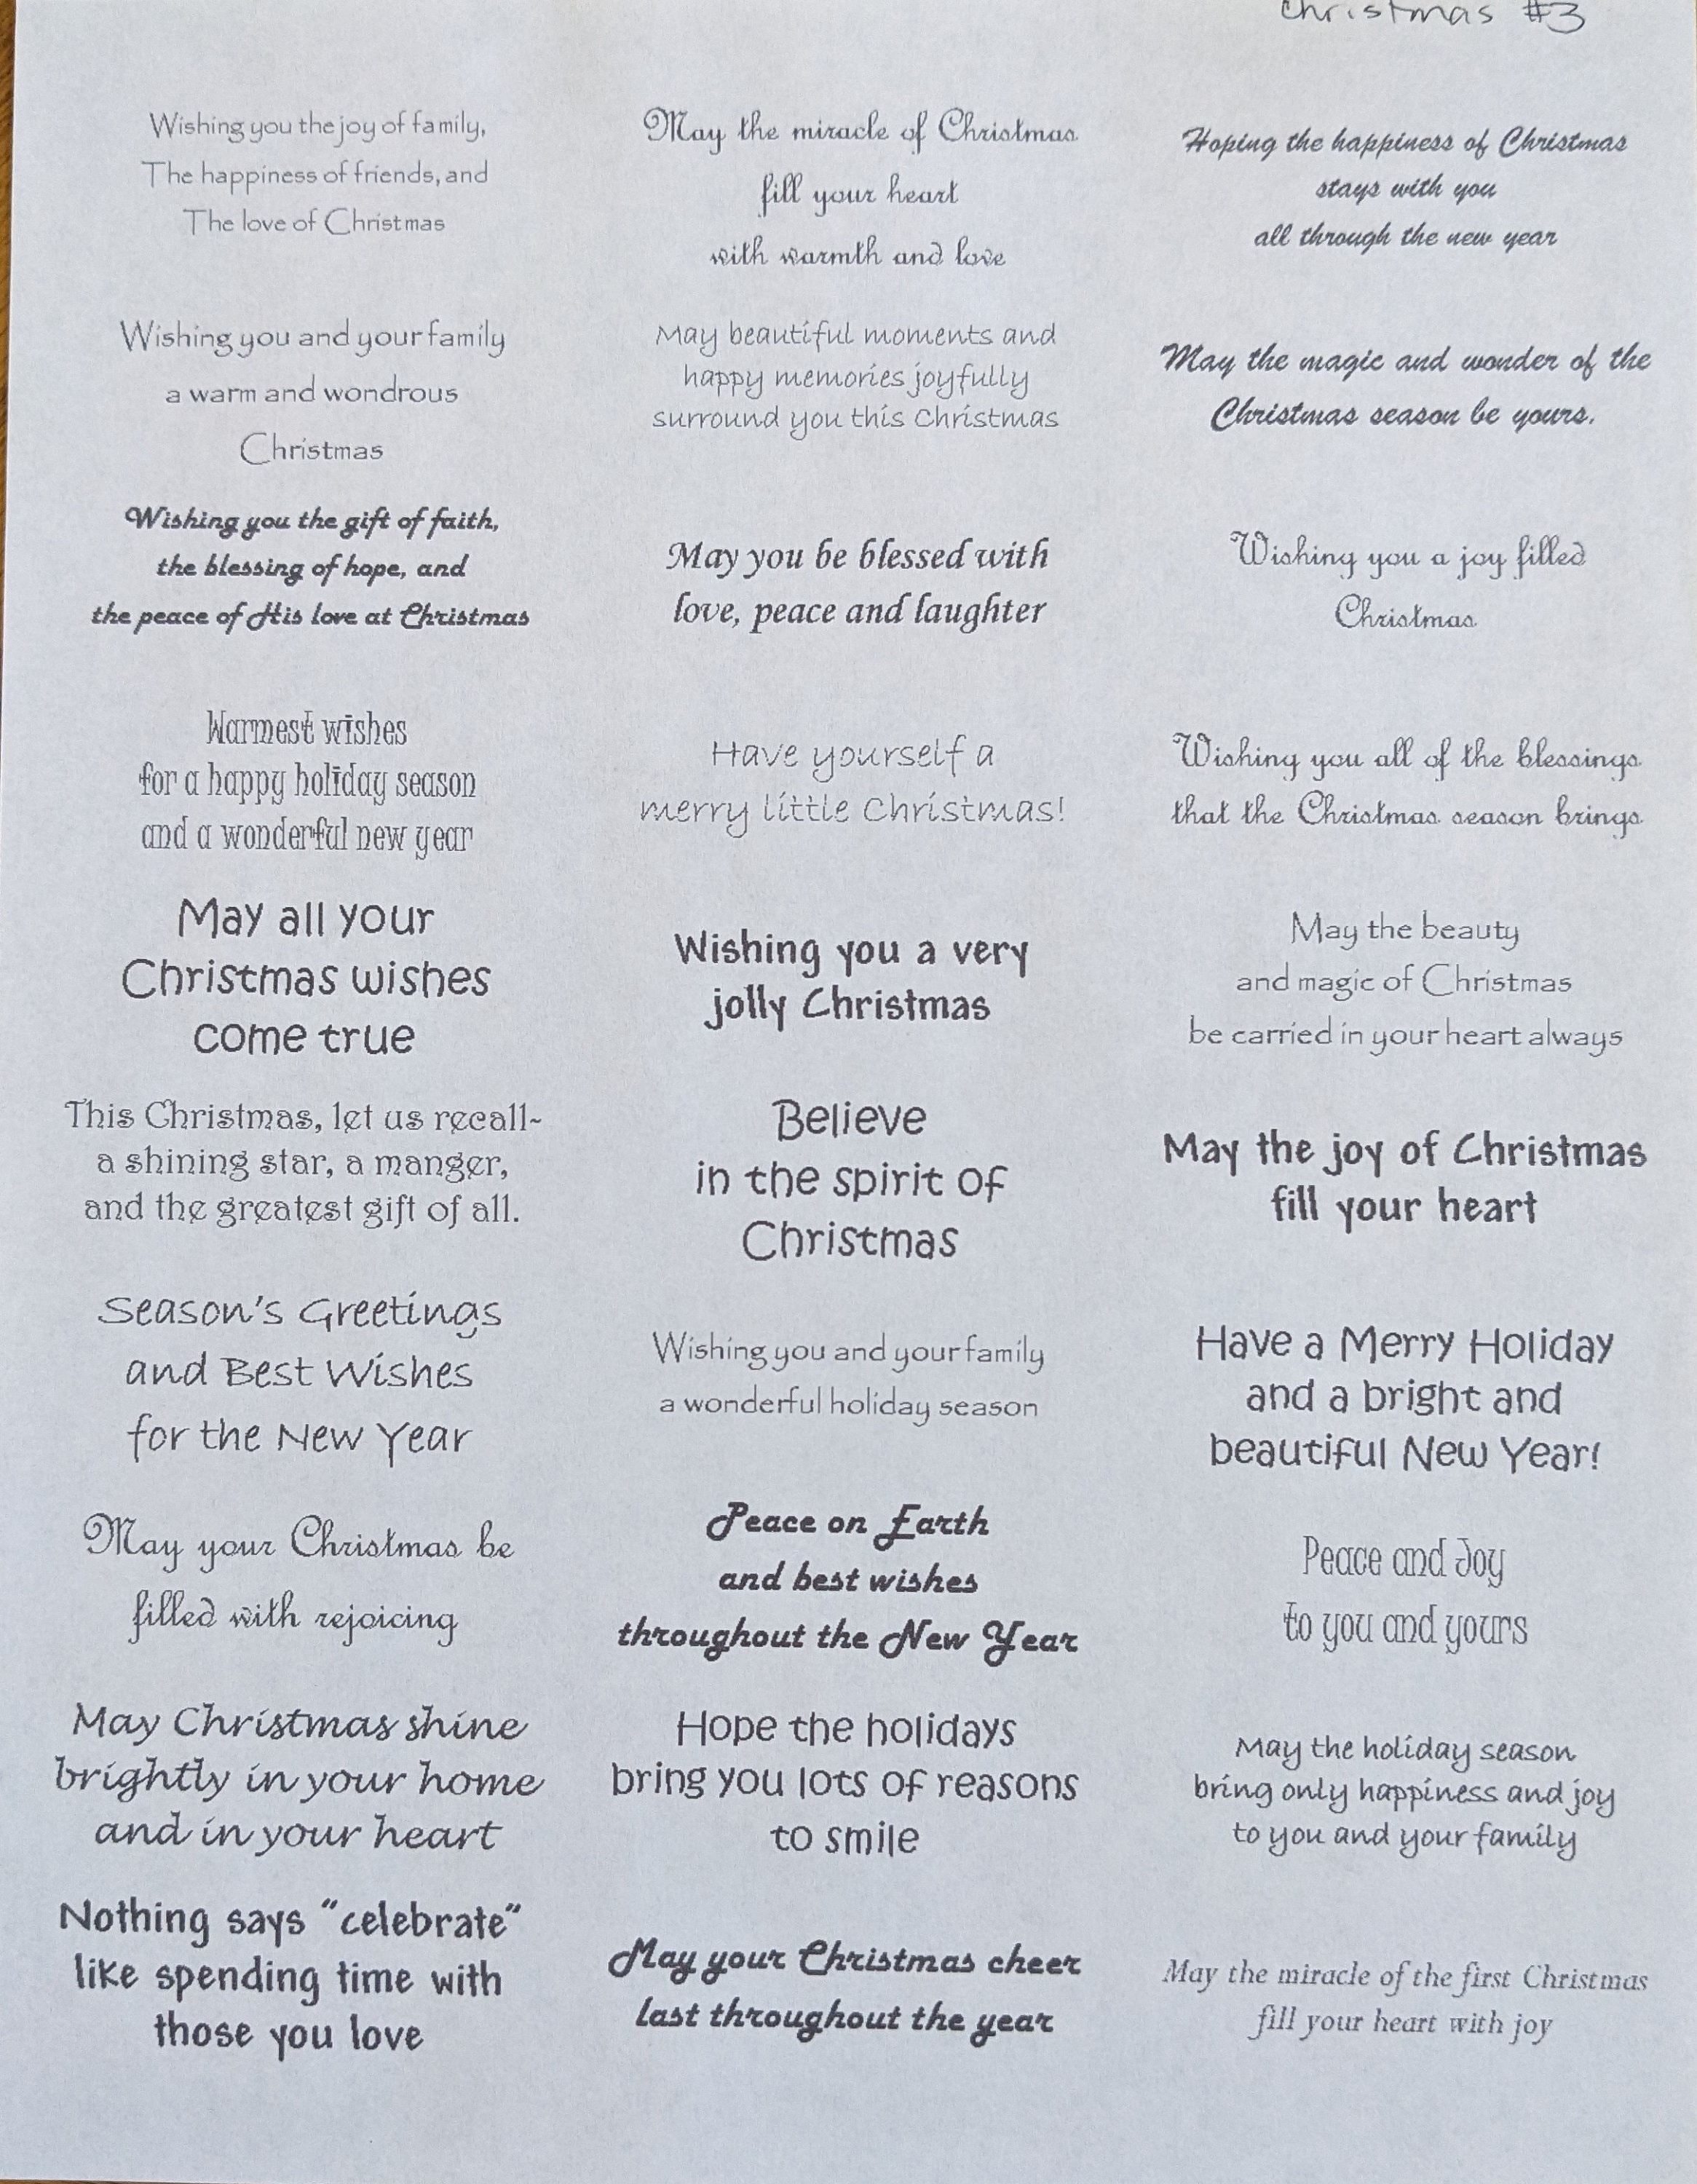 Christmas #3
Wishing you the joy of family,
The happiness of friends, and
The love of Christmas
May the miracle of Christmas
fill your heart
with warmth and love
Hoping the happiness of Christmas
stays with you
all through the new year
Wishing you and your family
a warm and wondrous
Christmas
May beautiful moments and
happy memories joyfully
surround you this Christmas
May the magic and wonder of the
Christmas season be yours.
Wishing you the gift of faith,
the blessing of hope, and
the peace of His love at Christmas
May you be blessed with
love, peace and laughter
Wishing you a joy filled
Christmas
Warmest wishes
for a happy holiday season
and a wonderful new year
Have yourself a
merry little Christmas!
Wishing you all of the blessings
that the Christmas season brings
May all your
Christmas wishes
come true
Wishing you a very
jolly Christmas
May the beauty
and magic of Christmas
be carried in your heart always
This Christmas, let us recall~
a shining star, a manger,
and the greatest gift of all.
Believe
in the spirit of
Christmas
May the joy of Christmas
fill your heart
Season's Greetings
and Best Wishes
for the New Year
Wishing you and your family
a wonderful holiday season
Have a Merry Holiday
and a bright and
beautiful New Year!
May your Christmas be
filled with rejoicing
Peace on Earth
and best wishes
throughout the New Year
Peace and Joy
to you and yours
May Christmas shine
brightly in your home
and in your heart
Hope the holidays
bring you lots of reasons
to smile
May the holiday season
bring only happiness and joy
to you and your family
Nothing says "celebrate"
like spending time with
those you love
May your Christmas cheer
last throughout the year
May the miracle of the first Christmas
fill your heart with joy